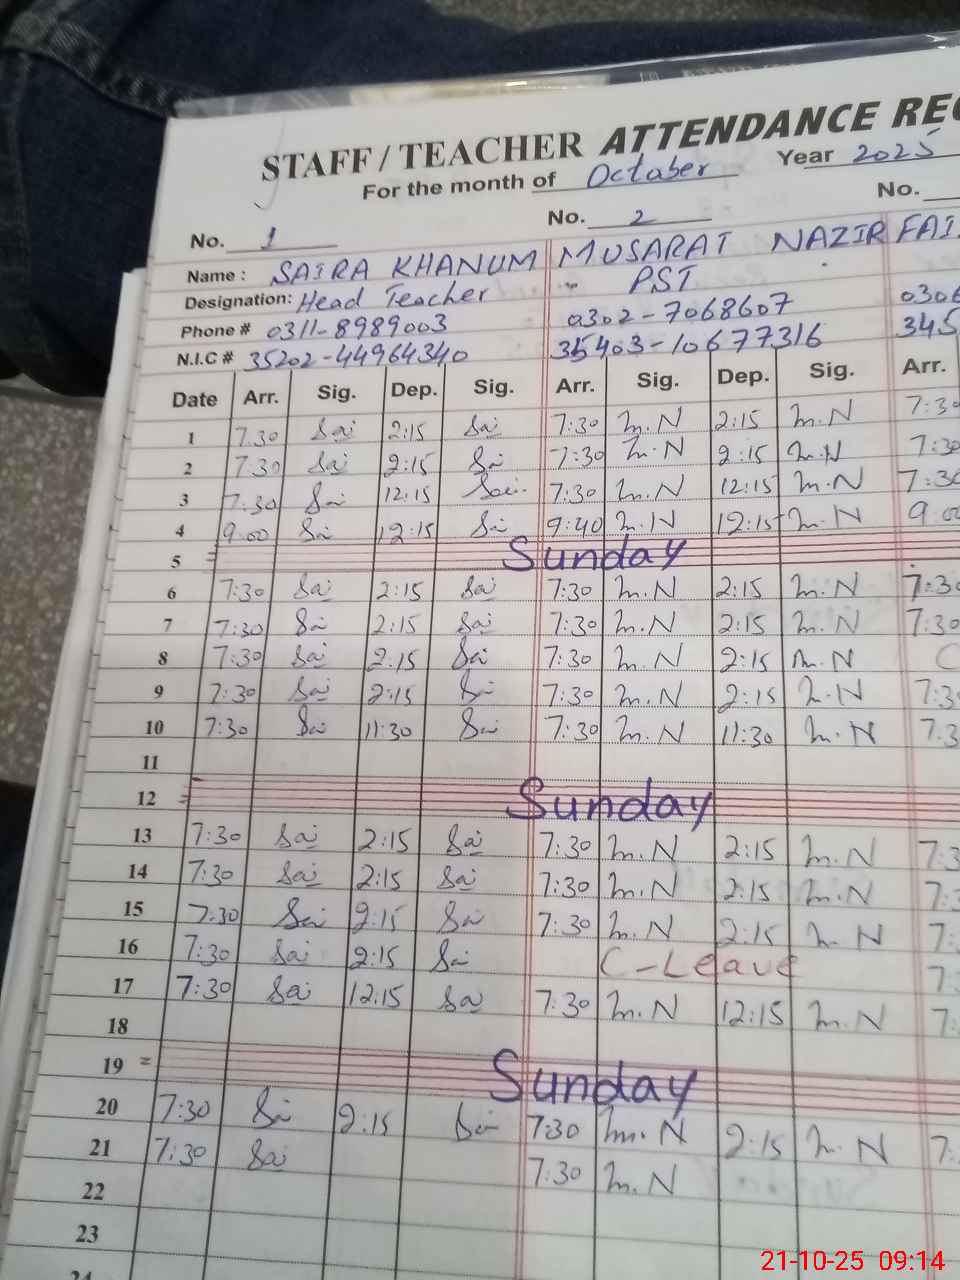 STAFF / TEACHER ATTENDANCE REC
For the month of October Year 2025
No. 1 No. 2 No.
Name : SAIRA KHANUM MUSARAT NAZIR FAI
Designation: Head Teacher PST
Phone # 0311-8989003 0302-7068607 0306
N.I.C # 35202-44964340 35403-10677316 345
Date Arr. Sig. Dep. Sig. Arr. Sig. Dep. Sig. Arr.
1 7:30 Sai 2:15 Sai 7:30 M.N 2:15 M.N 7:30
2 7:30 Sai 2:15 Sai 7:30 M.N 2:15 M.N 7:30
3 7:30 Sai 12:15 Sai 7:30 M.N 12:15 M.N 7:30
4 9:00 Sai 12:15 Sai 9:40 M.N 12:15 M.N 9:00
5 Sunday
6 7:30 Sai 2:15 Sai 7:30 M.N 2:15 M.N 7:30
7 7:30 Sai 2:15 Sai 7:30 M.N 2:15 M.N 7:30
8 7:30 Sai 2:15 Sai 7:30 M.N 2:15 M.N C
9 7:30 Sai 2:15 Sai 7:30 M.N 2:15 M.N 7:3
10 7:30 Sai 11:30 Sai 7:30 M.N 11:30 M.N 7:3
11
12 Sunday
13 7:30 Sai 2:15 Sai 7:30 M.N 2:15 M.N 7:3
14 7:30 Sai 2:15 Sai 7:30 M.N 2:15 M.N 7:3
15 7:30 Sai 2:15 Sai 7:30 M.N 2:15 M.N 7:
16 7:30 Sai 2:15 Sai C-Leave 7:3
17 7:30 Sai 12:15 Sai 7:30 M.N 12:15 M.N 7:
18
19 Sunday
20 7:30 Sai 2:15 Sai 7:30 M.N 2:15 M.N 7:
21 7:30 Sai 7:30 M.N
22
23
24
21-10-25 09:14